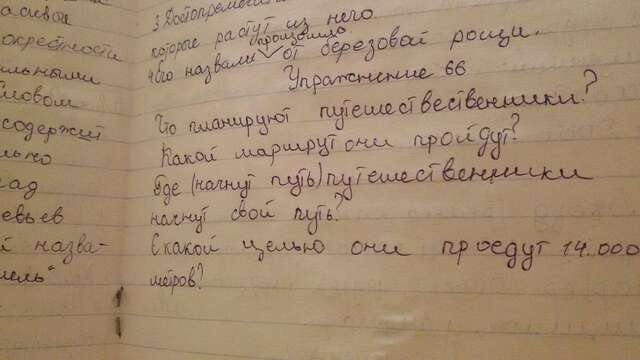 окрестности
альными
содержит
льно
сад
евьев
й назва-
которые растут из него.
произошло
4 Его назвали от березовой рощи.
Упражнение 66
Что планируют путешествественники?
Какой маршрут они пройдут?
Где (начнут путь) путешественники
начнут свой путь?
С какой целью они проедут 14.000
метров?